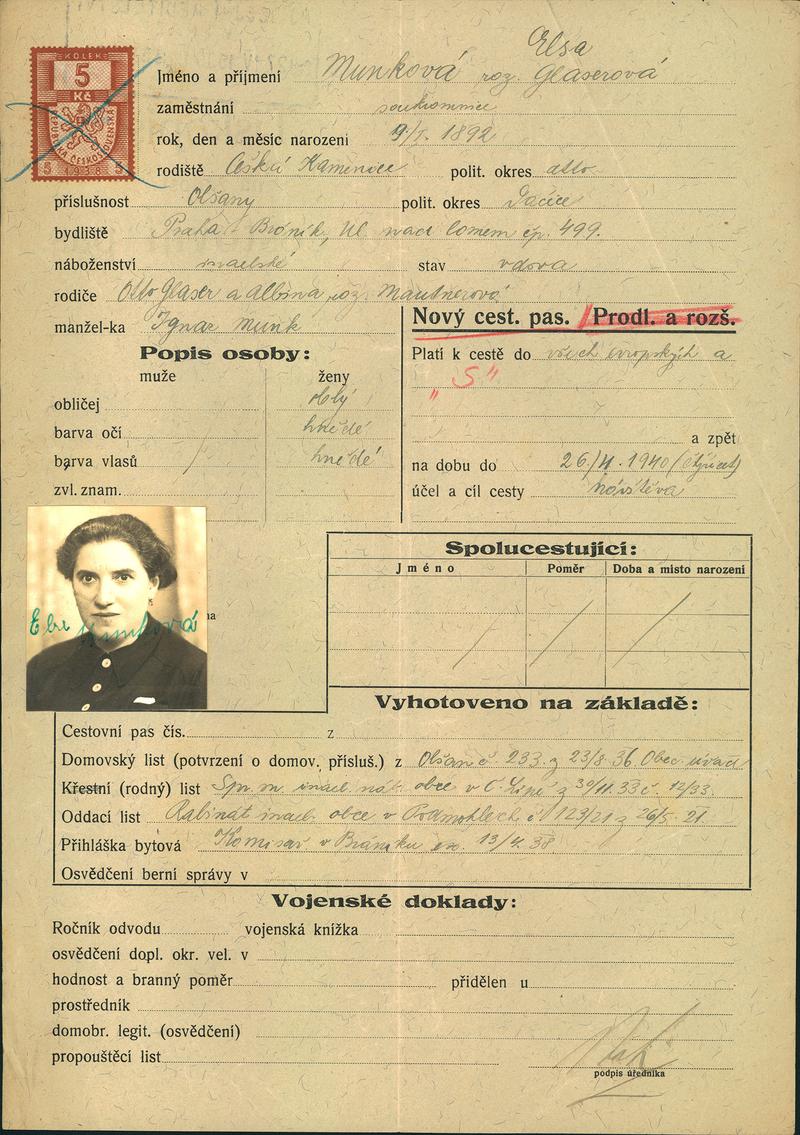 KOLEK
5
Kč
REPUBLIKA ČESKOSLOVENSKÁ
5 1938 5
Elsa
Jméno a příjmení Munková roz. Glaserová
zaměstnání soukromnice
rok, den a měsíc narození 9/I. 1892
rodiště Česká Kamenice polit. okres detto
příslušnost Olšany polit. okres Dačice
bydliště Praha - Bráník, Ul. nad lomem čp. 499.
náboženství israelské stav vdova
rodiče Otto Glaser a Albina roz. Mautnerová
manžel-ka Ignaz Munk
Nový cest. pas. / Prodl. a rozš.
Popis osoby:
muže ženy
Platí k cestě do všech evropských a
"S"
obličej oblý
barva očí hnědé
barva vlasů / hnědé
zvl. znam.
a zpět
na dobu do 26/4. 1940
účel a cíl cesty návštěva
Munková
Spolucestující:
Jméno Poměr Doba a místo narození
Vyhotoveno na základě:
Cestovní pas čís. z
Domovský list (potvrzení o domov. přísluš.) z Olšan č. 233. z 23/8. 36. Obec. úřad
Křestní (rodný) list Spr. m. israel. náb. obce v Č. Lípě z 30/11. 33 č. 12/33.
Oddací list Rabinát israel. obce v Podmoklech č. 123/21 z 26/5. 21
Přihláška bytová Komisař v Bráníku 13/4. 38
Osvědčení berní správy v
Vojenské doklady:
Ročník odvodu vojenská knížka
osvědčení dopl. okr. vel. v
hodnost a branný poměr přidělen u
prostředník
domobr. legit. (osvědčení)
propouštěcí list
podpis úředníka